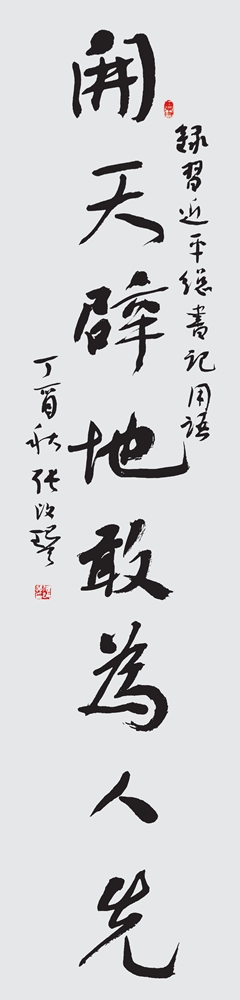 開天辟地敢為人先
録習近平總書記用語
丁酉秋張改琴